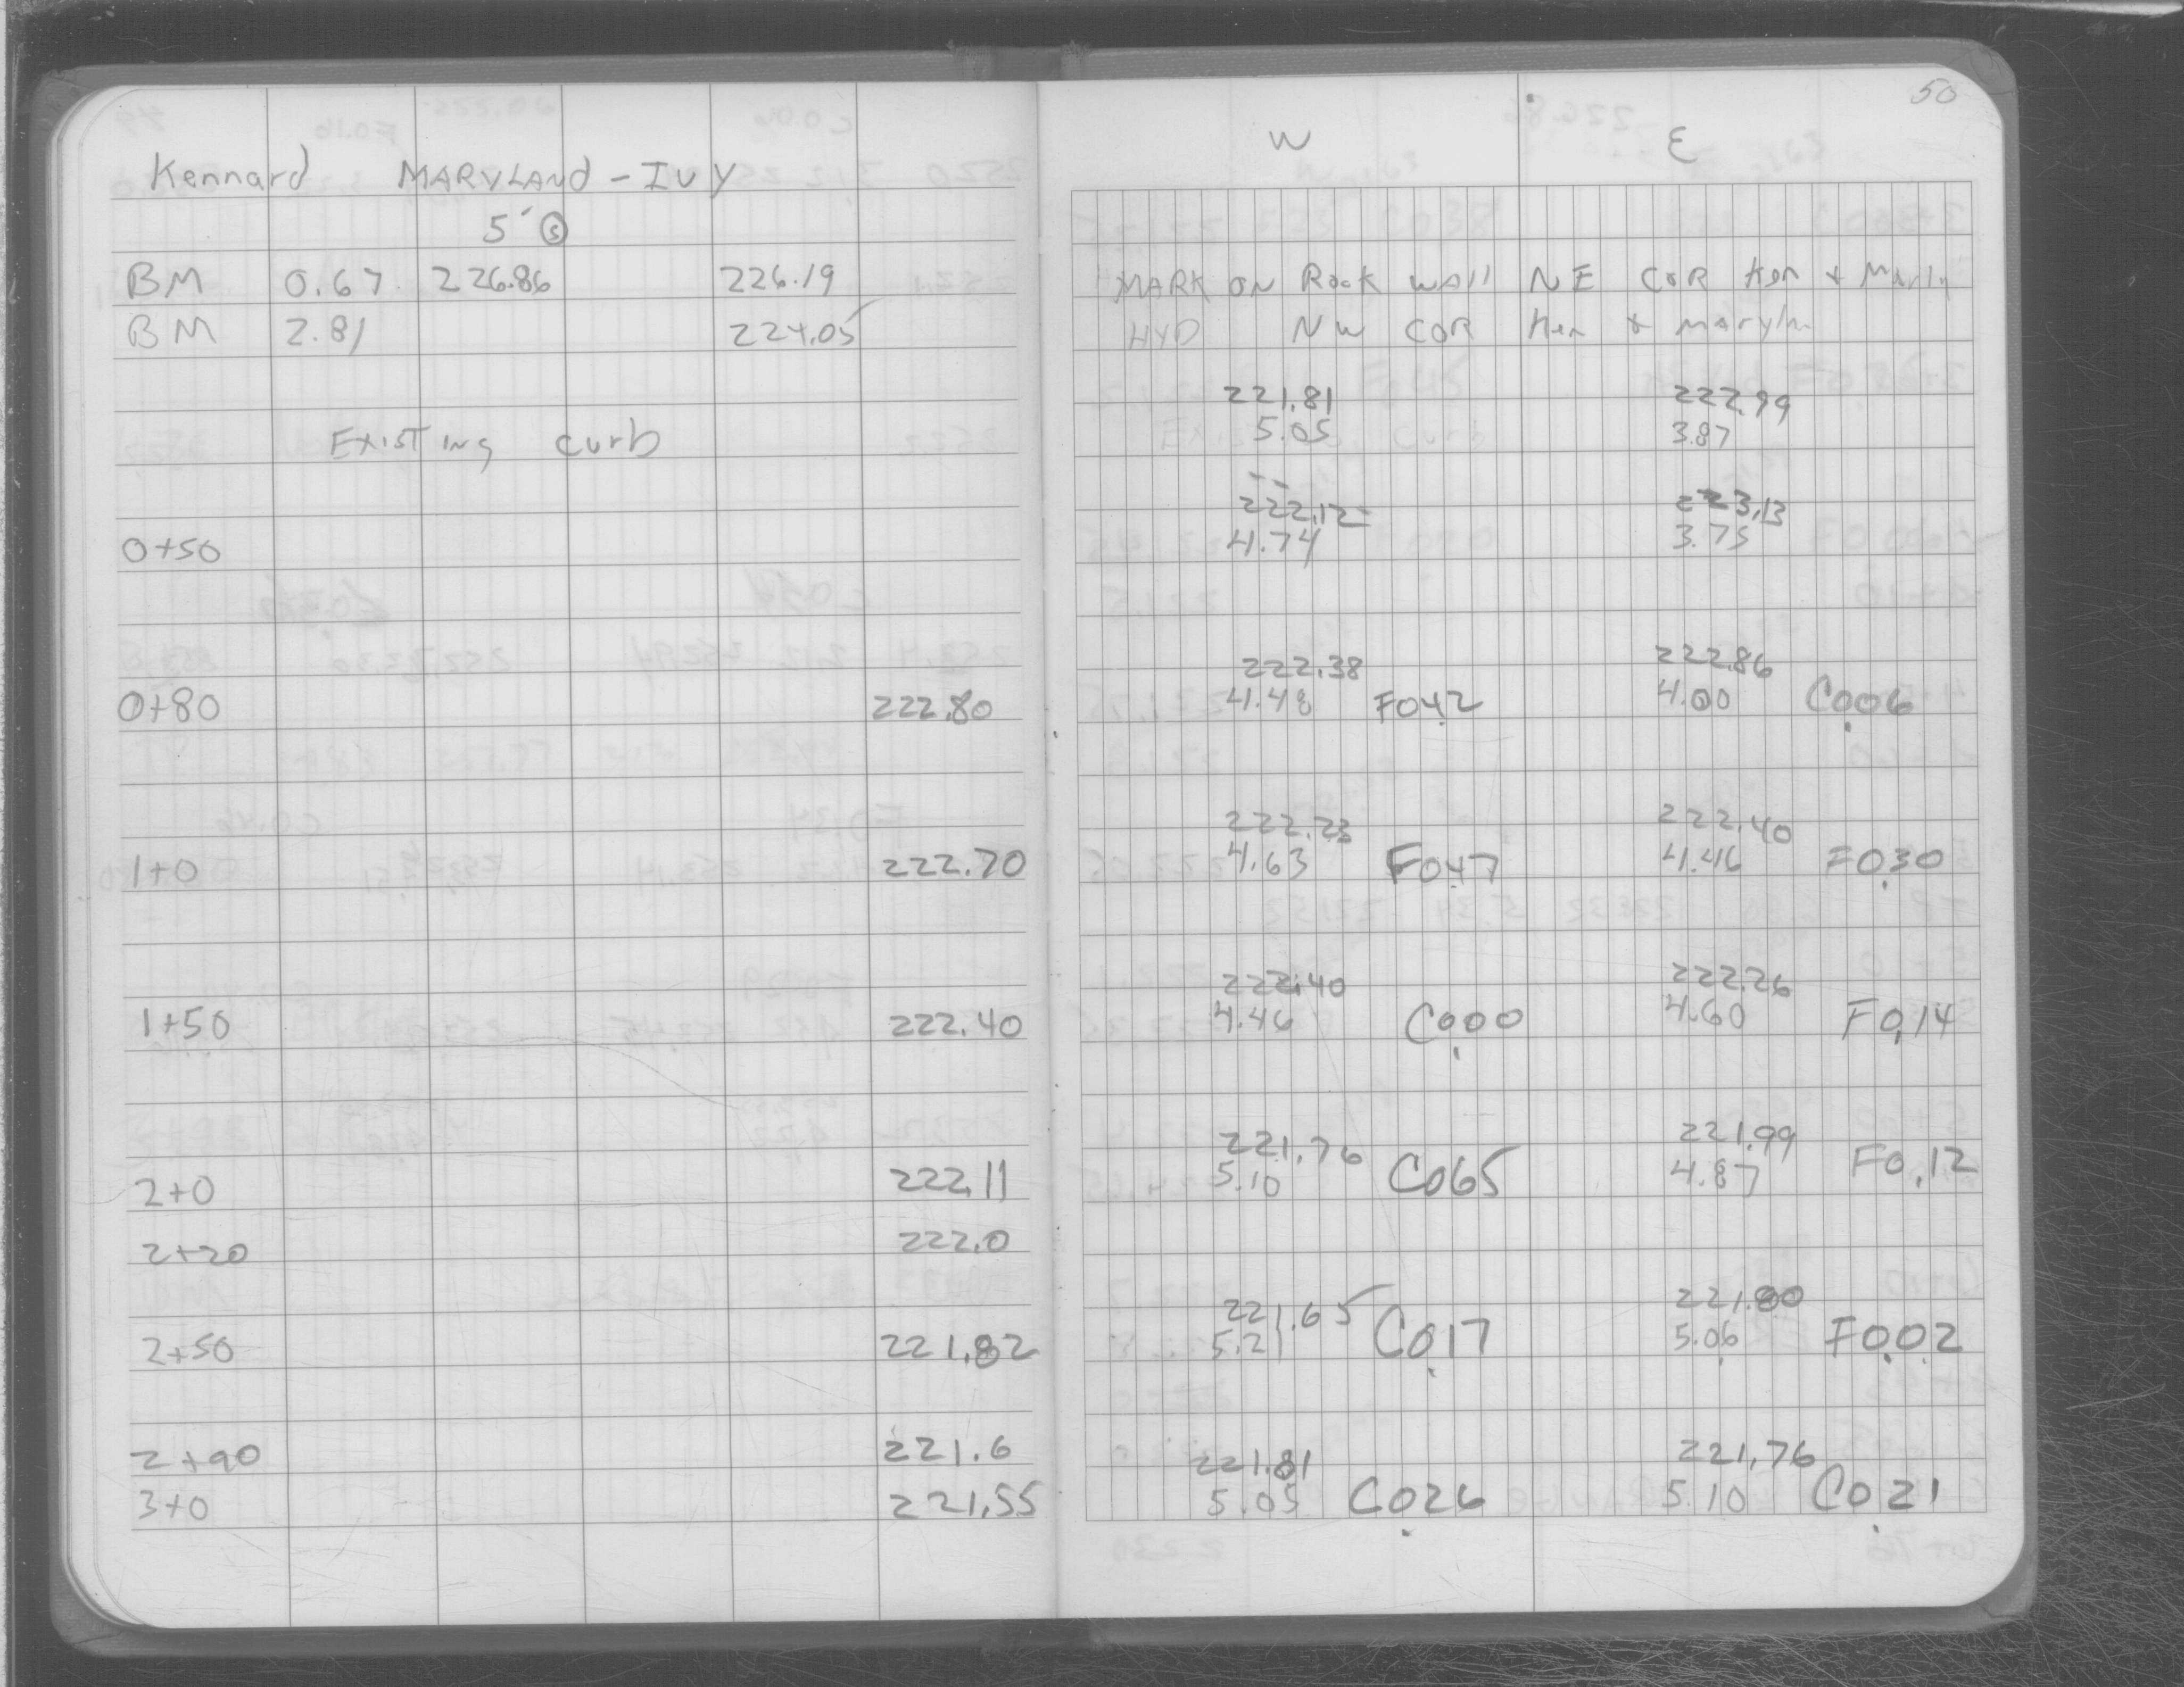 50
W E
Kennard MARYLAND - IVY
5' Ⓢ
BM 0.67 226.86 226.19 MARK ON Rock WAll NE COR Ken + Maryln
BM 2.81 224.05 HYD NW COR Ken & Maryln
221.81 222.99
Existing curb 5.05 3.87
222.12 223.13
0+50 4.74 3.75
222.38 222.86
0+80 222.80 4.48 F0.42 4.00 C0.06
222.23 222.40
1+0 222.70 4.63 F0.47 4.46 F0.30
222.40 222.26
1+50 222.40 4.46 C0.00 4.60 F0.14
221.76 221.99
2+0 222.11 5.10 C065 4.87 F0.12
2+20 222.0
221.65 221.80
2+50 221.82 5.21 C0.17 5.06 F0.02
2+90 221.6 221.81 221.76
3+0 221.55 5.05 C0.26 5.10 C0.21